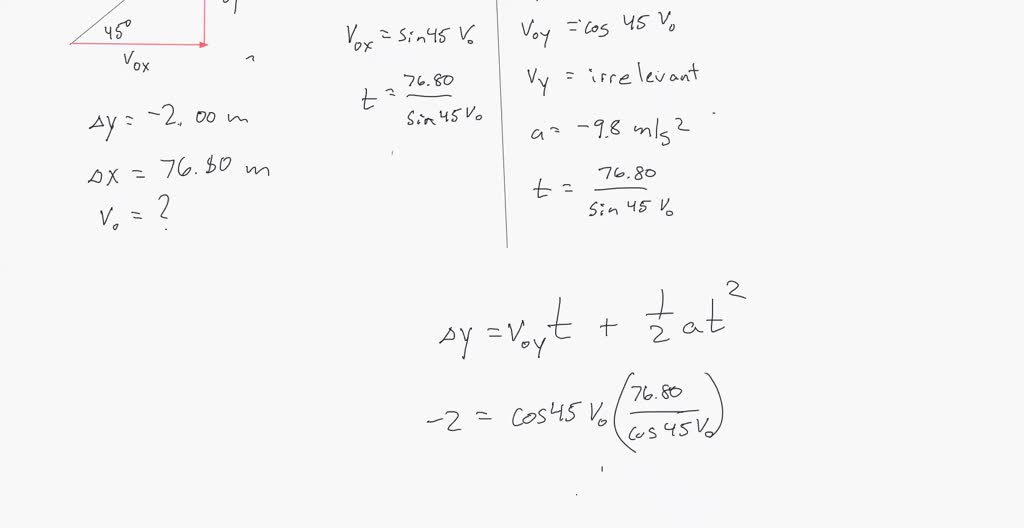 45°
Vox
Δy = -2.00 m
Δx = 76.80 m
V₀ = ?
Vox = sin45 V₀
t = 76.80 / sin45 V₀
Voy = cos 45 V₀
Vy = irrelevant
a = -9.8 m/s²
t = 76.80 / sin 45 V₀
Δy = Voy t + 1/2 at²
-2 = cos45 V₀ (76.80 / cos 45 V₀)